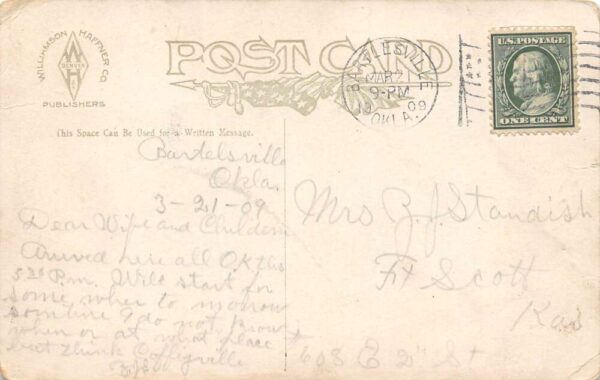 WILLIAMSON HAFFNER CO.
DENVER
PUBLISHERS
POST CARD
BARTLESVILLE
MAR 21
9-PM
1909
OKLA.
U.S. POSTAGE
ONE CENT
This Space Can Be Used for a Written Message.
Bartelsville
Okla.
3-21-09
Dear Wife and Children
Arrived here all OK this
5 20 P.m. Will start for
some where to morrow
sometime I do not know
when or at what place
but think Coffeyville
ZJS
Mrs Z. J. Standish
Ft Scott
Kas
603 E 2" St